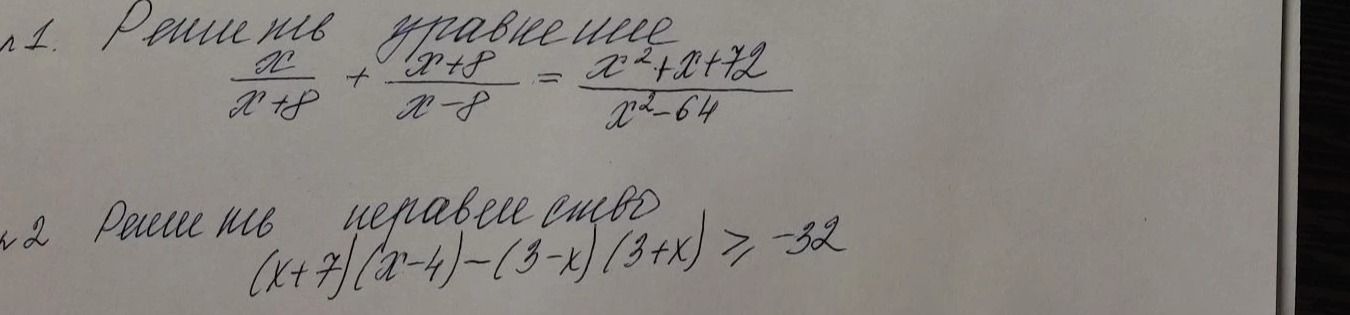 л1. Решить уравнение
x/(x+8) + (x+8)/(x-8) = (x²+x+72)/(x²-64)
л2 Решить неравенство
(x+7)(x-4)-(3-x)(3+x) ⩾ -32